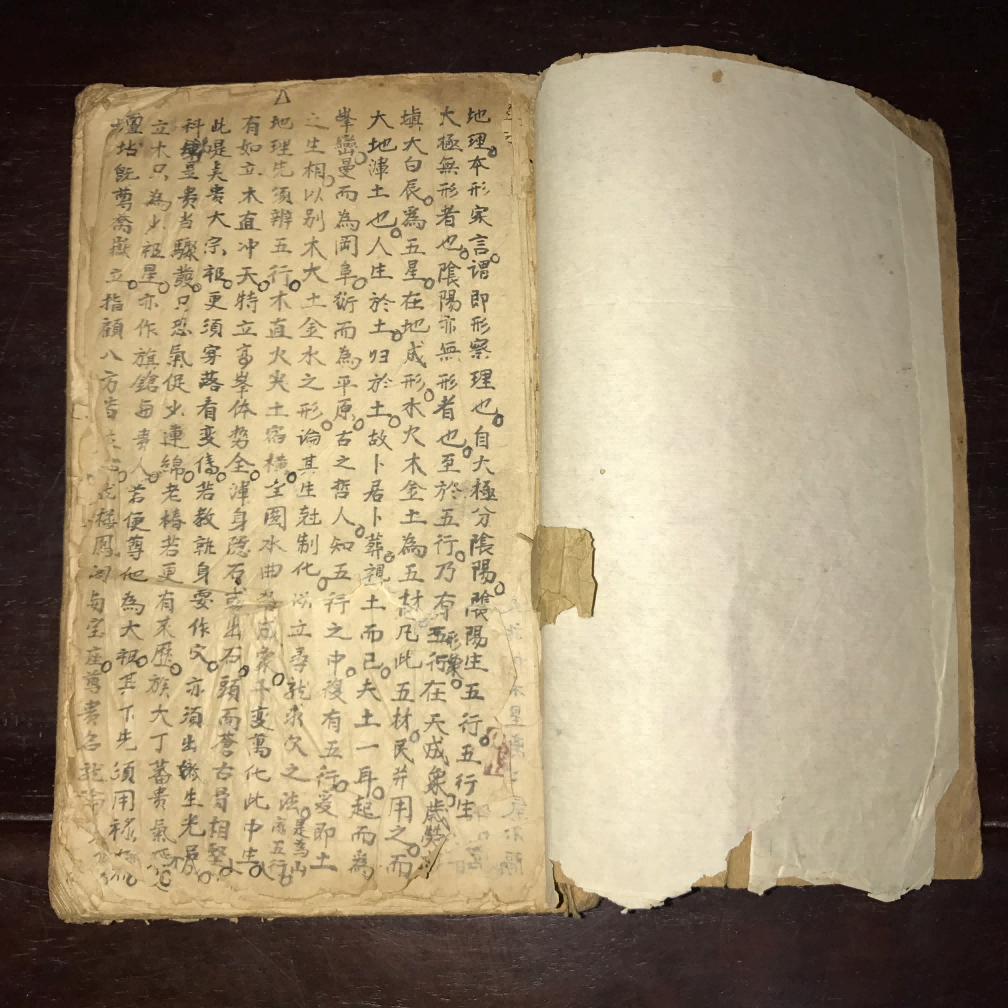 地理本形家言謂即形察理也自大極分陰陽陰陽生五行五行生
大極無形者也陰陽亦無形者也至於五行乃有形象五行在天成象歲熒
填大白辰為五星在地成形水火木金土為五材凡此五材民並用之而
大地渾土也人生於土归於土故卜居卜葬親土而已夫土一耳起而為
峯巒曼而為岡阜衍而為平原古之哲人知五行之中復有五行爰即土
之生相以別木火土金水之形論其生尅制化以立尋龍求穴之法
地理先須辨五行木直火尖土宿橫金圓水曲為成家千變萬化此中生
有如立木直冲天特立高峯体势全渾身隐石或出石頭面蒼古骨相堅
此是矣贵大宗祖更須穿落看变傳若教龍身要作穴亦須出嫩生光
科貴当驟發只恐氣促少連綿老樁若更有來歷族大丁蕃贵氣
立木只為少祖星亦作旗鎗与贵人若便尊他為大祖其下先須用
壇坫既尊喬嶽立指顧八方皆楼鳳阁与宝座尊贵名龍